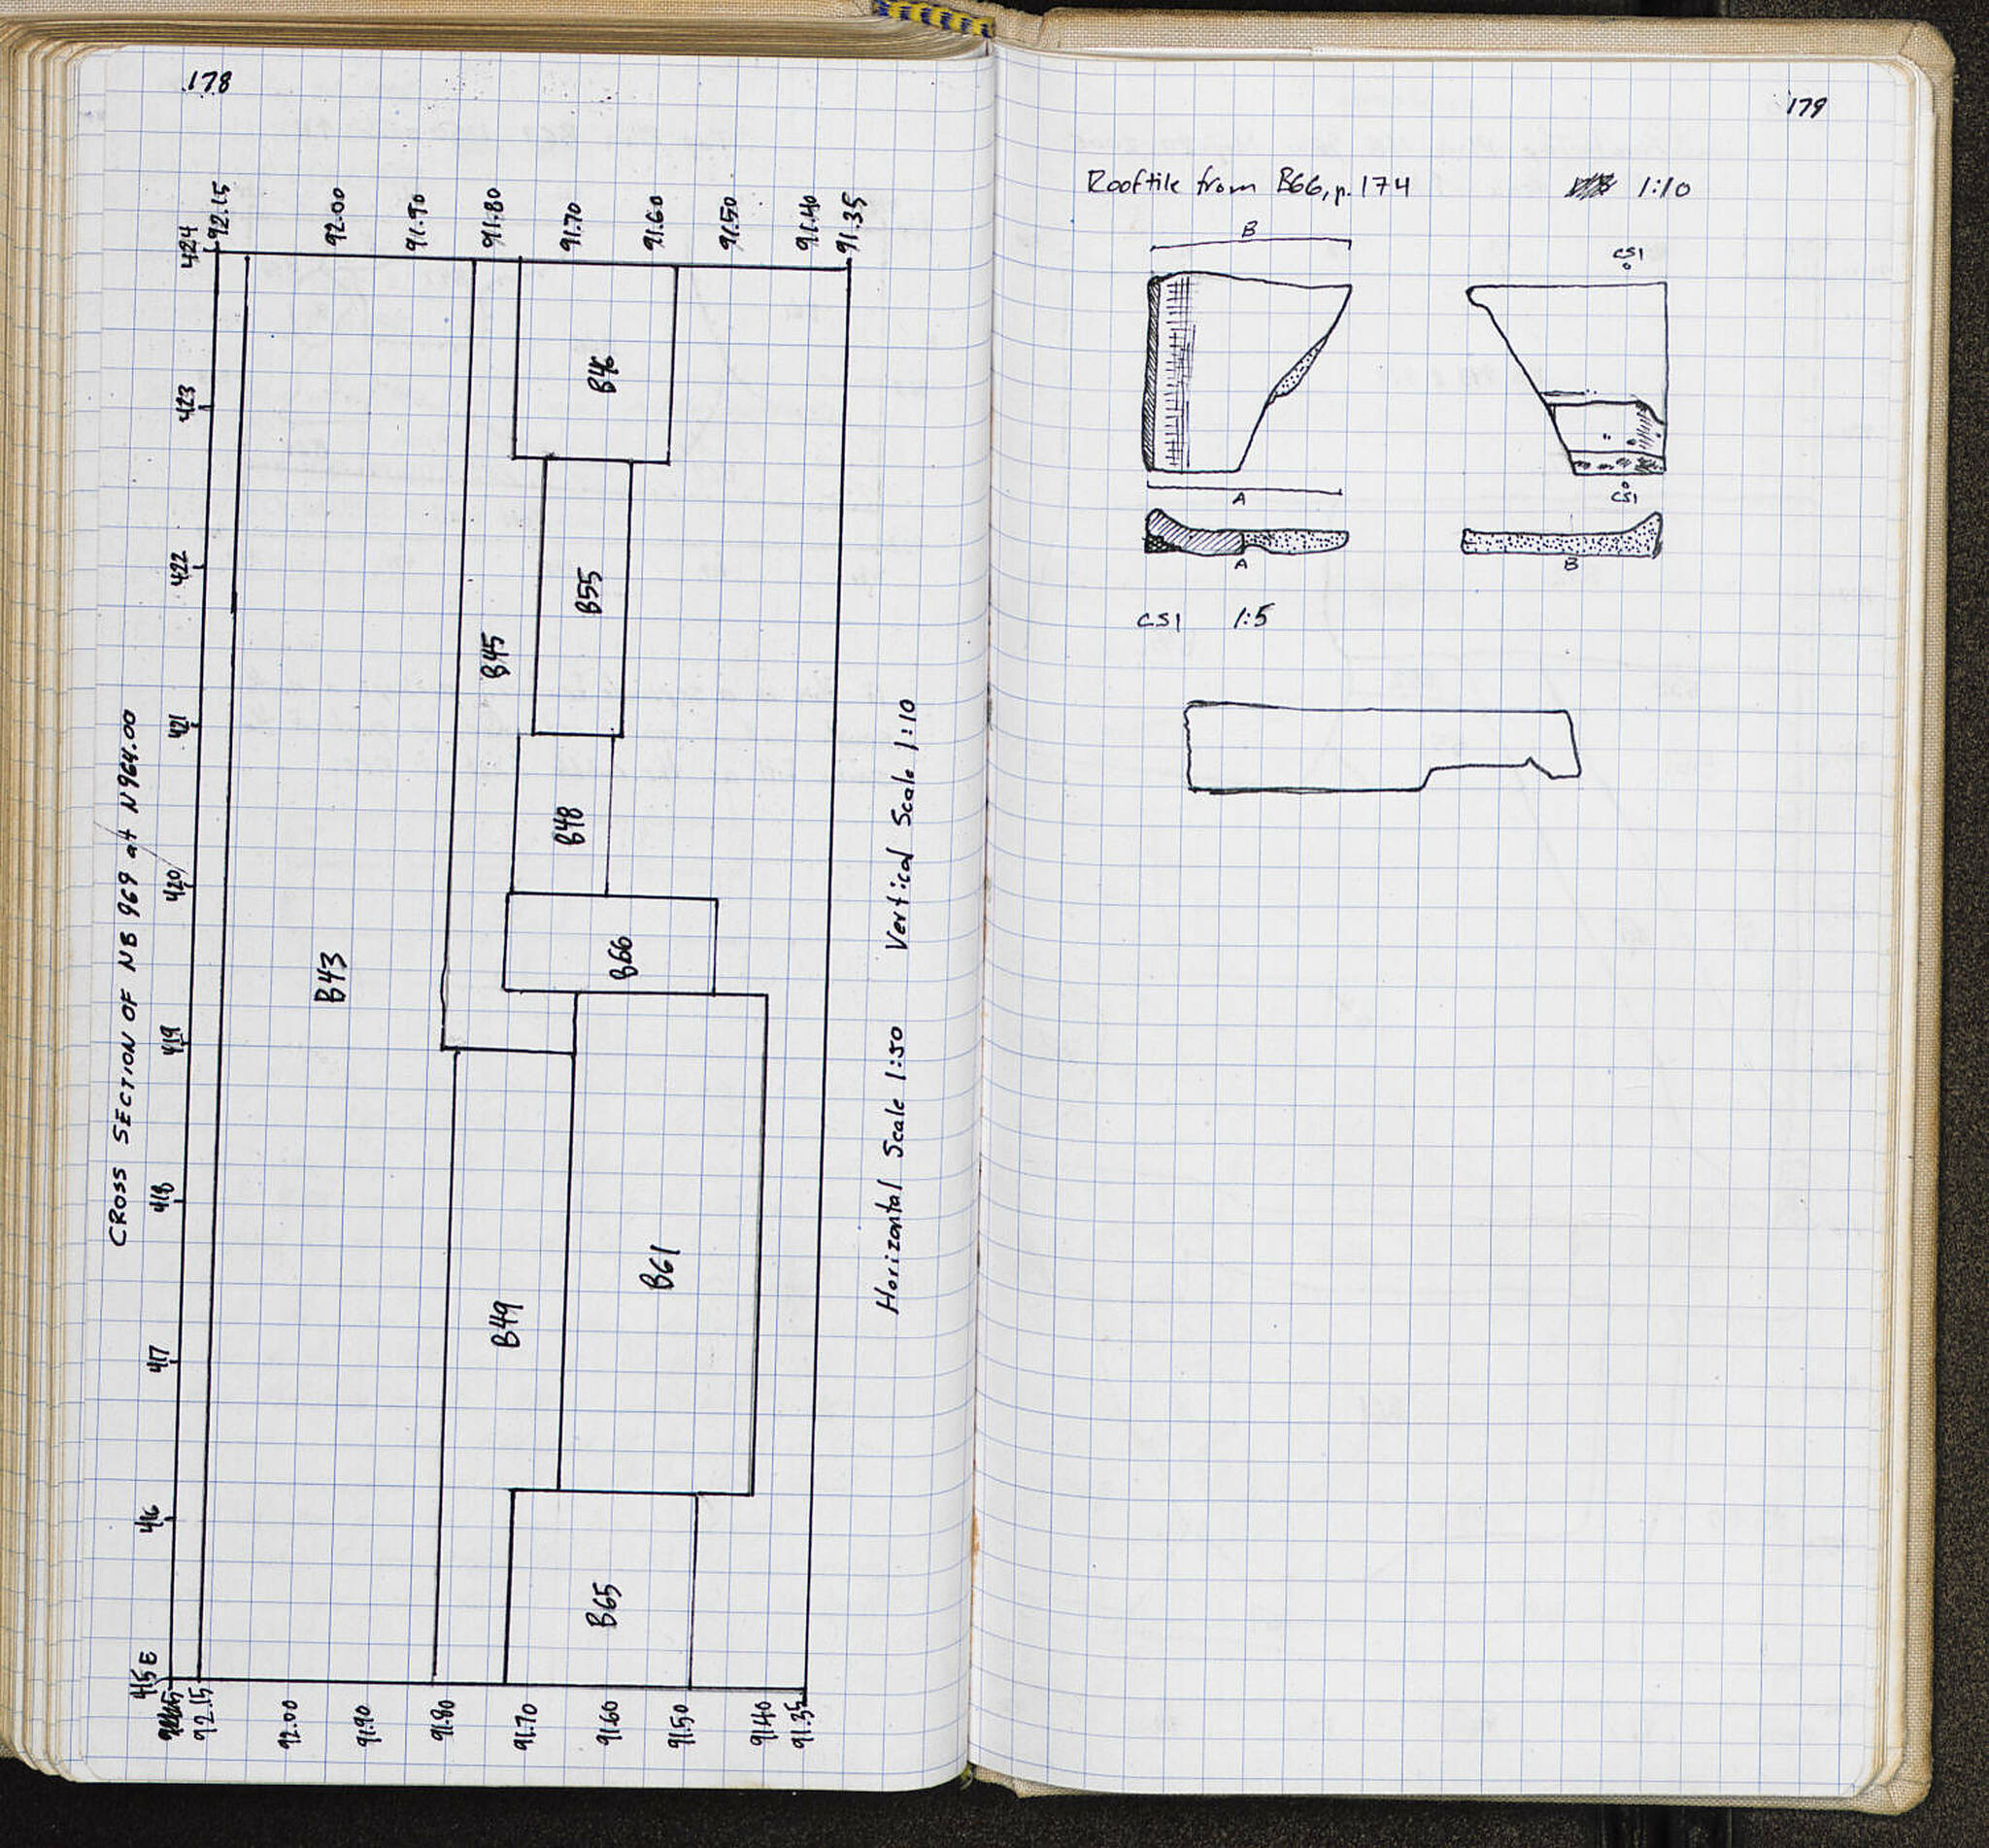 178
CROSS SECTION OF NB 969 at N964.00
415E 416 417 418 419 420 421 422 423 424
92.15 92.15
92.00 92.00
91.90 91.90
91.80 91.80
91.70 91.70
91.60 91.60
91.50 91.50
91.40 91.40
91.35 91.35
B43
B45
B49
B46
B55
B48
B66
B61
B65
Horizontal Scale 1:50 Vertical Scale 1:10
179
Rooftile from B66, p. 174 1:10
B
CS1
A
CS1
A
B
CS1 1:5